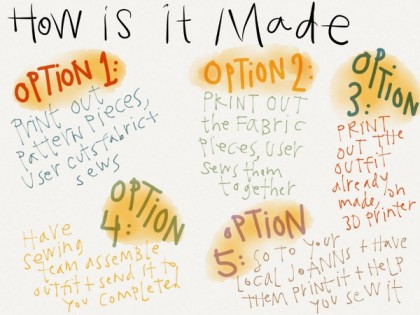 How is it Made
OPTION 1:
PRINT OUT
Pattern Pieces,
User cuts fabric +
sews
OPTION 2:
PRINT OUT
the FABRIC
Pieces, User
Sews them
together
OPTION
3:
PRINT
OUT THE
OUTFIT
already
made, on
3D PRINTER
OPTION
4:
Have
sewing
team assemble
outfit + send it to
you completed
OPTION
5: GO TO your
LOCAL JOANNS + Have
THEM PRINT IT + HELP
you sew it